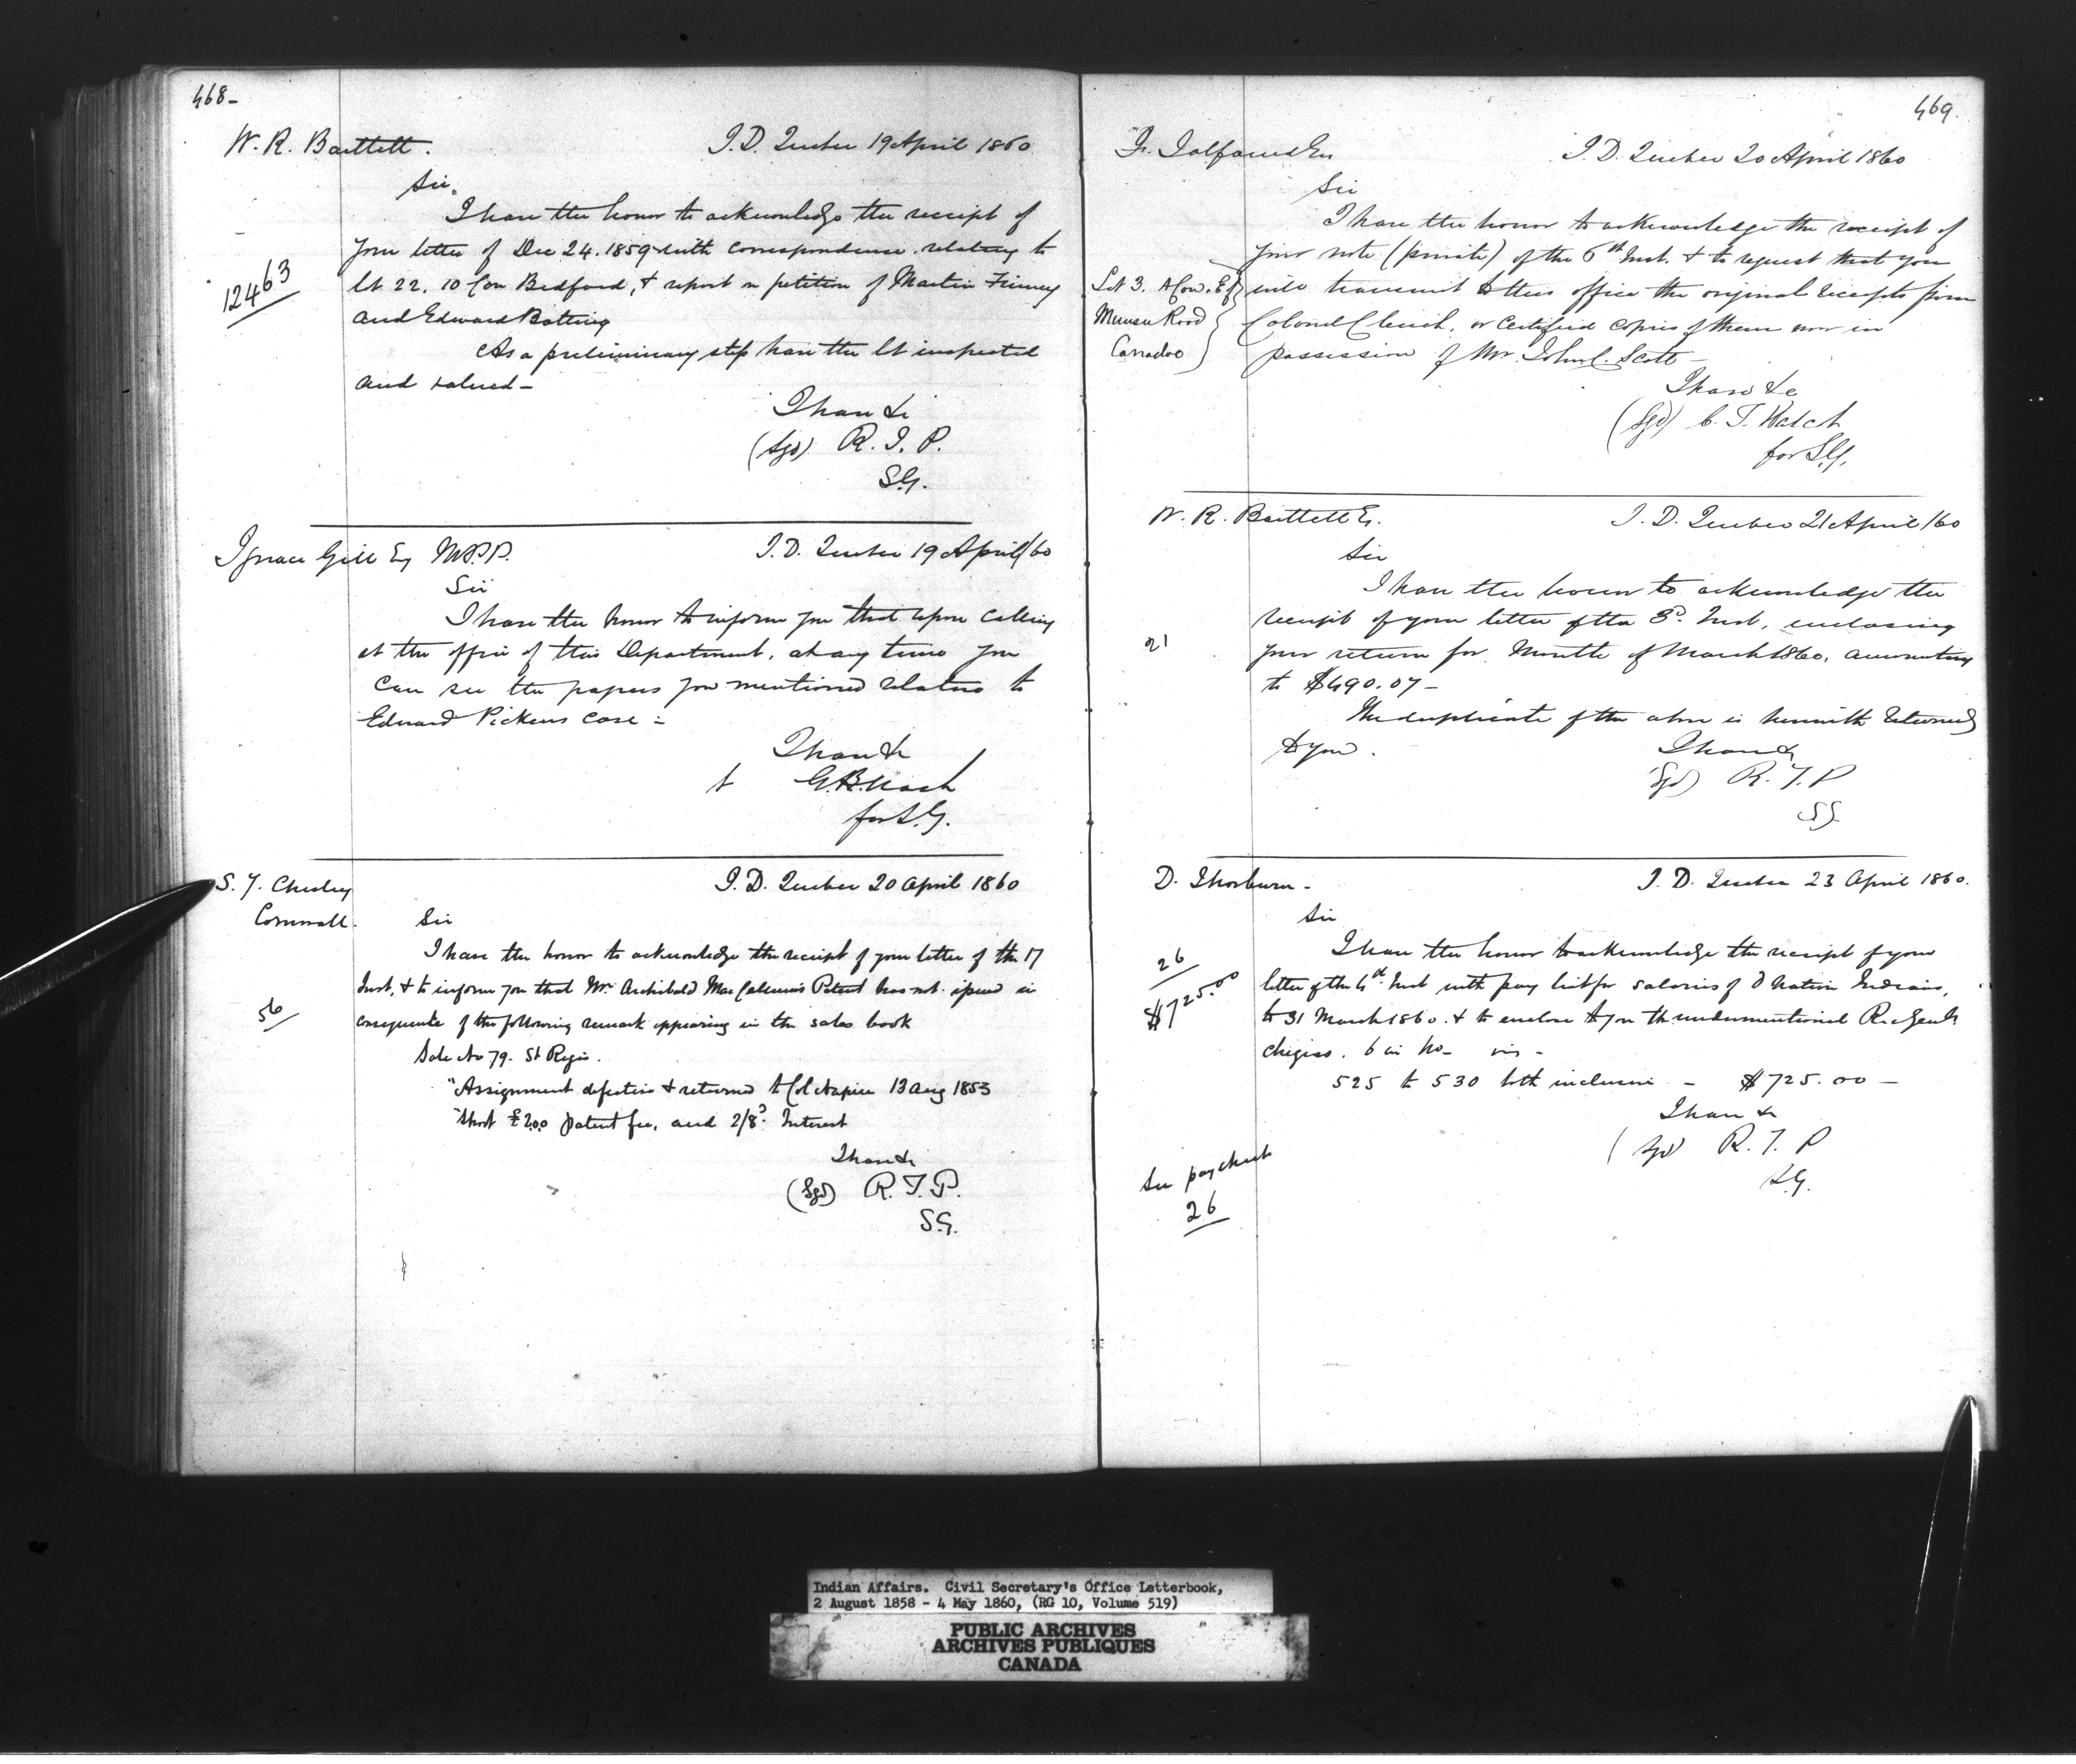 468-
W. R. Bartlett. I.D. Quebec 19 April 1860
Sir,
I have the honor to acknowledge the receipt of
your letter of Dec 24. 1859 with correspondence relating to
12463
lt 22. 10 Con Bedford, & report on petition of Martin Finney
and Edward Botting
As a preliminary step have the lt inspected
and valued -
I have &c
(Sgd) R. T. P.
S.G.
Ignace Gill Esq M.P.P. I.D. Quebec 19 April /60
Sir
I have the honor to inform you that upon calling
at the office of this Department, at any time you
can see the papers you mentioned relative to
Edward Pickens case -
I have &c
for S.G.
S. Y. Chesley I.D. Quebec 20 April 1860
Cornwall. Sir
I have the honor to acknowledge the receipt of your letter of the 17
Inst, & to inform you that Mr. Archibald Patent has not issued in
56
consequence of the following remark appearing in the sales book
Sale No 79. St Regis.
"Assignment defective & returned to Col Napier 13 Aug 1853
"Short £2.0.0 patent fee, and 2/8d Interest
I have &c
(Sgd) R. T. P.
S.G.
469.
Fr. Talfourd Esq I.D. Quebec 20 April 1860
Sir
I have the honor to acknowledge the receipt of
your note (private) of the 6th Inst. & to request that you
Lot 3. A Con. E of
Muncey Road
Caradoc
will transmit to this office the original receipts from
Colonel Clench, or certified copies of them now in
possession of Mr. John C. Scott -
I have &c
(Sgd) C. T. Walcot
for S.G.
W. R. Bartlett Es. I.D. Quebec 21 April /60
Sir
I have the honor to acknowledge the
receipt of your letter of the 3d. Inst, enclosing
21
your return for Month of March 1860, amounting
to $490.07 -
The duplicate of the above is herewith returned
to you.
I have &c
(Sgd) R. T. P
S.G.
D. Thorburn - I.D. Quebec 23 April 1860.
Sir
26
$725.00
I have the honor to acknowledge the receipt of your
letter of the 4th Inst with pay list for salaries of 6 Nation Indians,
to 31 March 1860. & to enclose to you the undermentioned
cheques. 6 in No - viz -
525 to 530 both inclusive - $725.00 -
I have &c
(Sgd) R. T. P
S.G.
See paycheck
26
Indian Affairs. Civil Secretary's Office Letterbook,
2 August 1858 - 4 May 1860, (RG 10, Volume 519)
PUBLIC ARCHIVES
ARCHIVES PUBLIQUES
CANADA